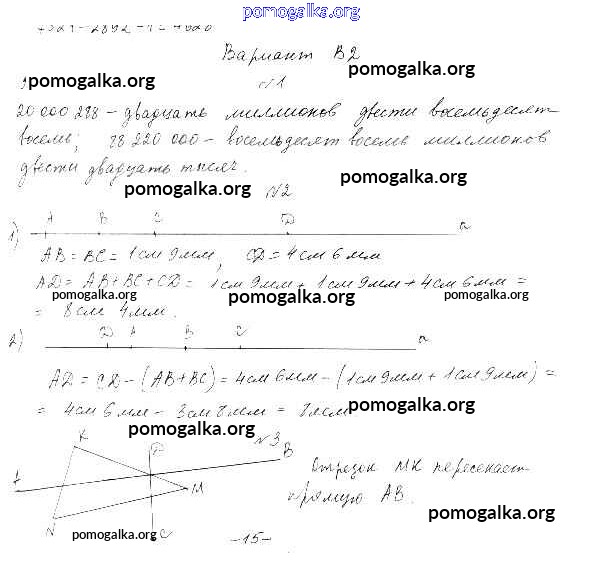 pomogalka.org
Вариант В2
pomogalka.org
pomogalka.org
№1
20 000 288 – двадцать миллионов двести восемьдесят
восемь; 88 220 000 – восемьдесят восемь миллионов
двести двадцать тысяч.
pomogalka.org
pomogalka.org
№2
1) A B C D a
AB = BC = 1см 9мм, CD = 4см 6мм
AD = AB + BC + CD = 1см 9мм + 1см 9мм + 4см 6мм =
pomogalka.org pomogalka.org pomogalka.org
= 8см 4мм.
2) D A B C a
AD = CD – (AB + BC) = 4см 6мм – (1см 9мм + 1см 9мм) =
= 4см 6мм – 3см 8мм = 8мм
pomogalka.org
pomogalka.org
№3
K D B
A M
N C
Отрезок MK пересекает
прямую AB.
pomogalka.org
pomogalka.org
–15–